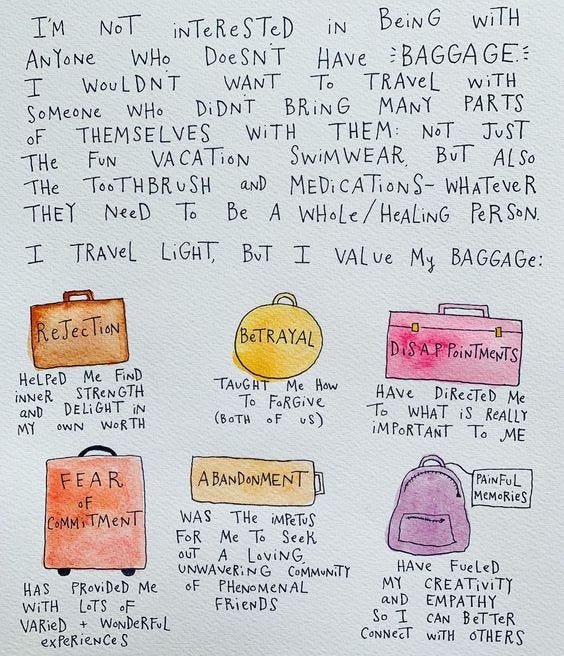 I'M NOT INTERESTED IN BEING WITH
ANYONE WHO DOESN'T HAVE BAGGAGE.
I WOULDN'T WANT TO TRAVEL WITH
SOMEONE WHO DIDN'T BRING MANY PARTS
OF THEMSELVES WITH THEM: NOT JUST
THE FUN VACATION SWIMWEAR, BUT ALSO
THE TOOTHBRUSH AND MEDICATIONS- WHATEVER
THEY NEED TO BE A WHOLE/HEALING PERSON.
I TRAVEL LIGHT, BUT I VALUE MY BAGGAGE:
REJECTION
HELPED ME FIND
INNER STRENGTH
AND DELIGHT IN
MY OWN WORTH
BETRAYAL
TAUGHT ME HOW
TO FORGIVE
(BOTH OF US)
DISAPPOINTMENTS
HAVE DIRECTED ME
TO WHAT IS REALLY
IMPORTANT TO ME
FEAR
OF
COMMITMENT
HAS PROVIDED ME
WITH LOTS OF
VARIED + WONDERFUL
EXPERIENCES
ABANDONMENT
WAS THE IMPETUS
FOR ME TO SEEK
OUT A LOVING,
UNWAVERING COMMUNITY
OF PHENOMENAL
FRIENDS
PAINFUL
MEMORIES
HAVE FUELED
MY CREATIVITY
AND EMPATHY
SO I CAN BETTER
CONNECT WITH OTHERS